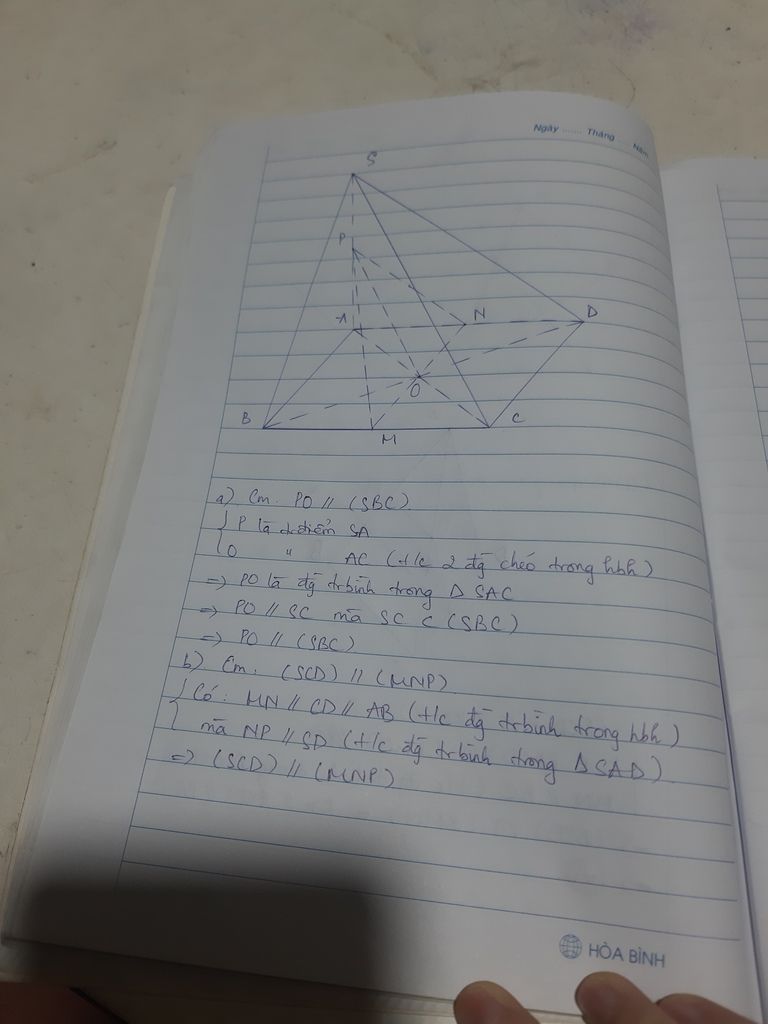 Ngày ...... Tháng .... Năm
S
P
A
N
D
O
B
M
C
a) Cm. PO // (SBC).
{ P là trđiểm SA
O " AC (t/c 2 đg̅ chéo trong hbh)
=> PO là đg̅ trbình trong Δ SAC
=> PO // SC mà SC ⊂ (SBC)
=> PO // (SBC)
b) Cm: (SCD) // (MNP)
{ Có: MN // CD // AB (t/c đg̅ trbình trong hbh)
mà NP // SD (t/c đg̅ trbình trong Δ SAD)
=> (SCD) // (MNP)
HÒA BÌNH